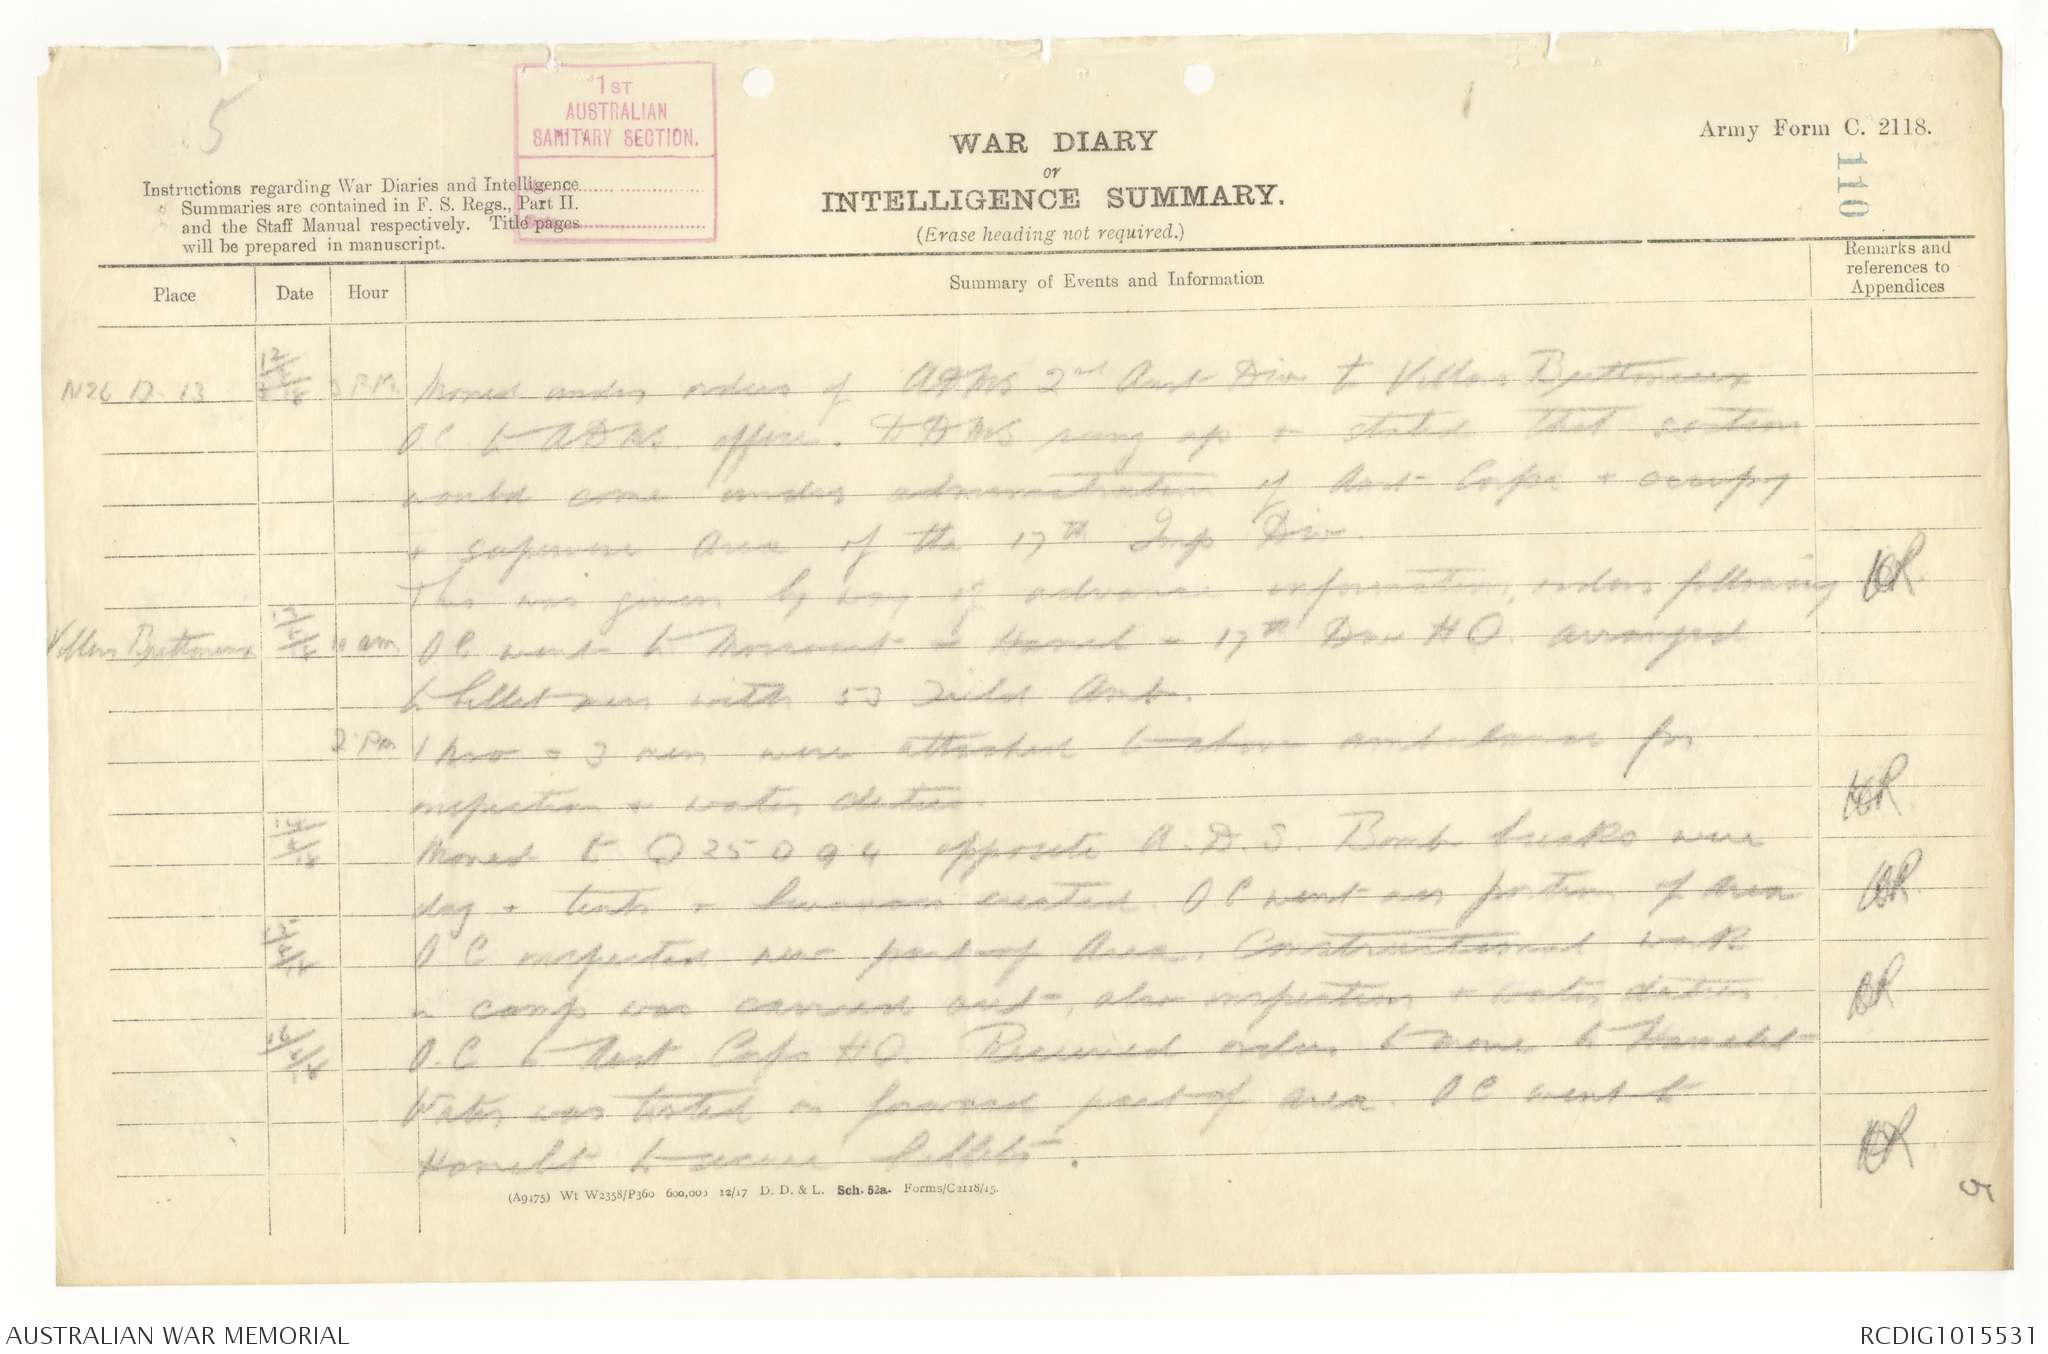 5
1ST
AUSTRALIAN
SANITARY SECTION.
WAR DIARY
or
INTELLIGENCE SUMMARY.
(Erase heading not required.)
Army Form C. 2118.
110
Instructions regarding War Diaries and Intelligence
Summaries are contained in F. S. Regs., Part II.
and the Staff Manual respectively. Title pages
will be prepared in manuscript.
Place
Date
Hour
Summary of Events and Information
Remarks and
references to
Appendices
N26 D. 13
Moved under orders of ADMS 2nd Aust Div to Villers Brettoneux
O.C. to ADMS. office. DDMS rung up & stated that section
would come under administration of Aust Corps & occupy
& supervise area of the 17th Imp Div.
This was given by way of advance information, orders following
Villers Brettoneux 10 am OC went to & Hamel & 17th Div HQ. arranged
to billet men with 53 Field Amb.
2 Pm 1 & 3 men were attached to above ambulance for
inspection & water duties.
Moved to O 25 D 9 4 opposite A.D.S. Bomb were
dug & tents & erected. OC went over portion of area
OC inspected new part of Area. Constructional work
in camp was carried out, also inspection & water duties
16/8/18 O.C to Aust Corps HQ. Received orders to move to
Water was tested in forward part of area. OC went to
to secure billets.
(A9175) Wt W2358/P360 600,000 12/17 D. D. & L. Sch. 52a. Forms/C2118/15.
5
AUSTRALIAN WAR MEMORIAL
RCDIG1015531